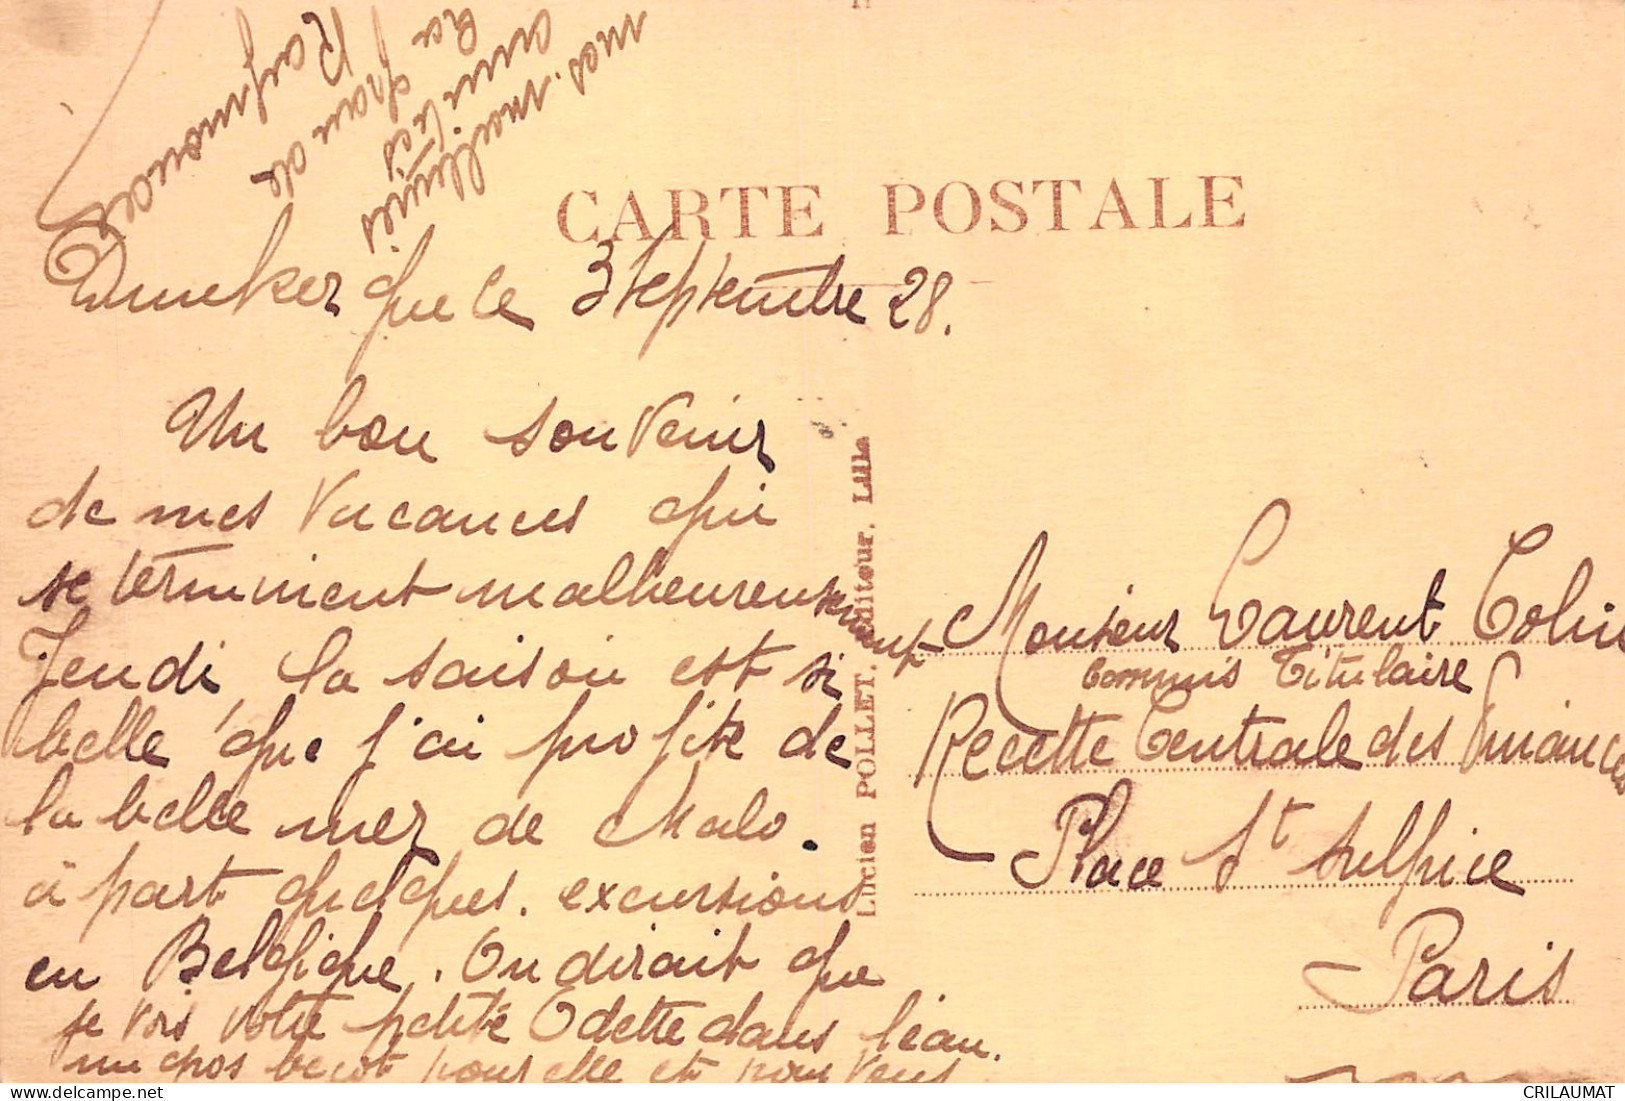 CARTE POSTALE
Dunkerque le 3 Septembre 28.
Un bon souvenir
de mes vacances qui
se terminent malheureusement
Jeudi la saison est si
belle que j'ai profité de
la belle mer de Malo.
à part quelques. excursions
en Belgique. On dirait que
je vois votre petite Odette dans l'eau.
un gros becot pour elle et pour vous
mes. meilleures
amitiés
Raymonde
Lucien POLLET, Éditeur, Lille
Monsieur Laurent Colin
Commis Titulaire
Recette Centrale des Finances
Place St Sulpice
Paris
CRILAUMAT